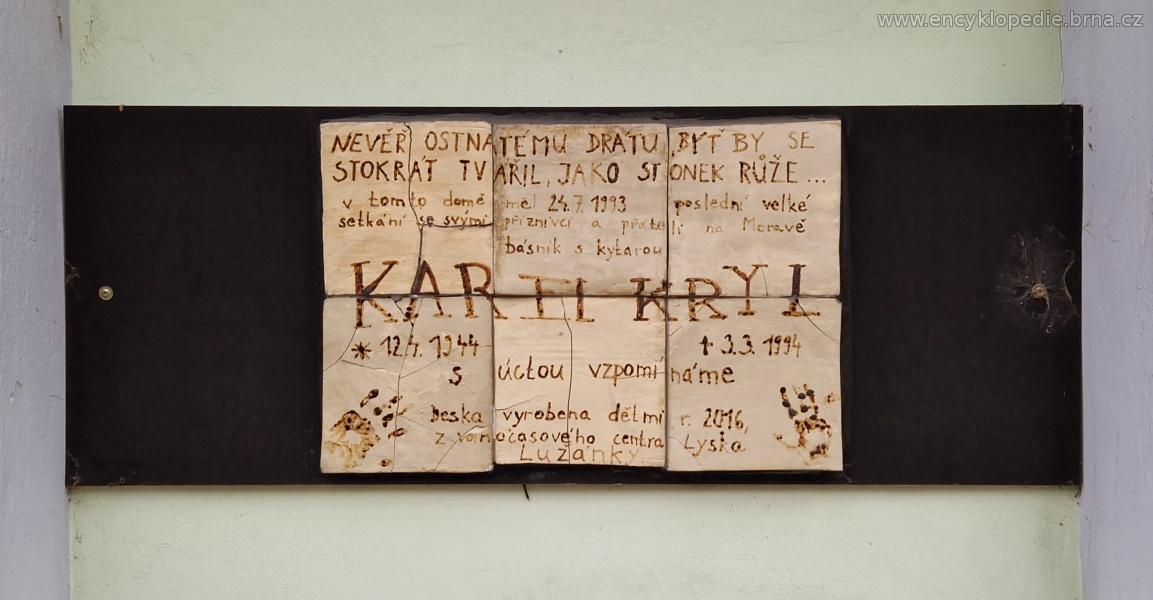 www.encyklopedie.brna.cz
NEVĚŘ OSTNATÉMU DRÁTU, BYŤ BY SE
STOKRÁT TVÁŘIL, JAKO STONEK RŮŽE...
v tomto domě měl 24.7.1993 poslední velké
setkání se svými příznivci a přáteli na Moravě
básník s kytarou
KAREL KRYL
* 12.4. 1944 † 3.3. 1994
s úctou vzpomínáme
Deska vyrobena dětmi r. 2016,
z volnočasového centra Lyska
Lužánky.